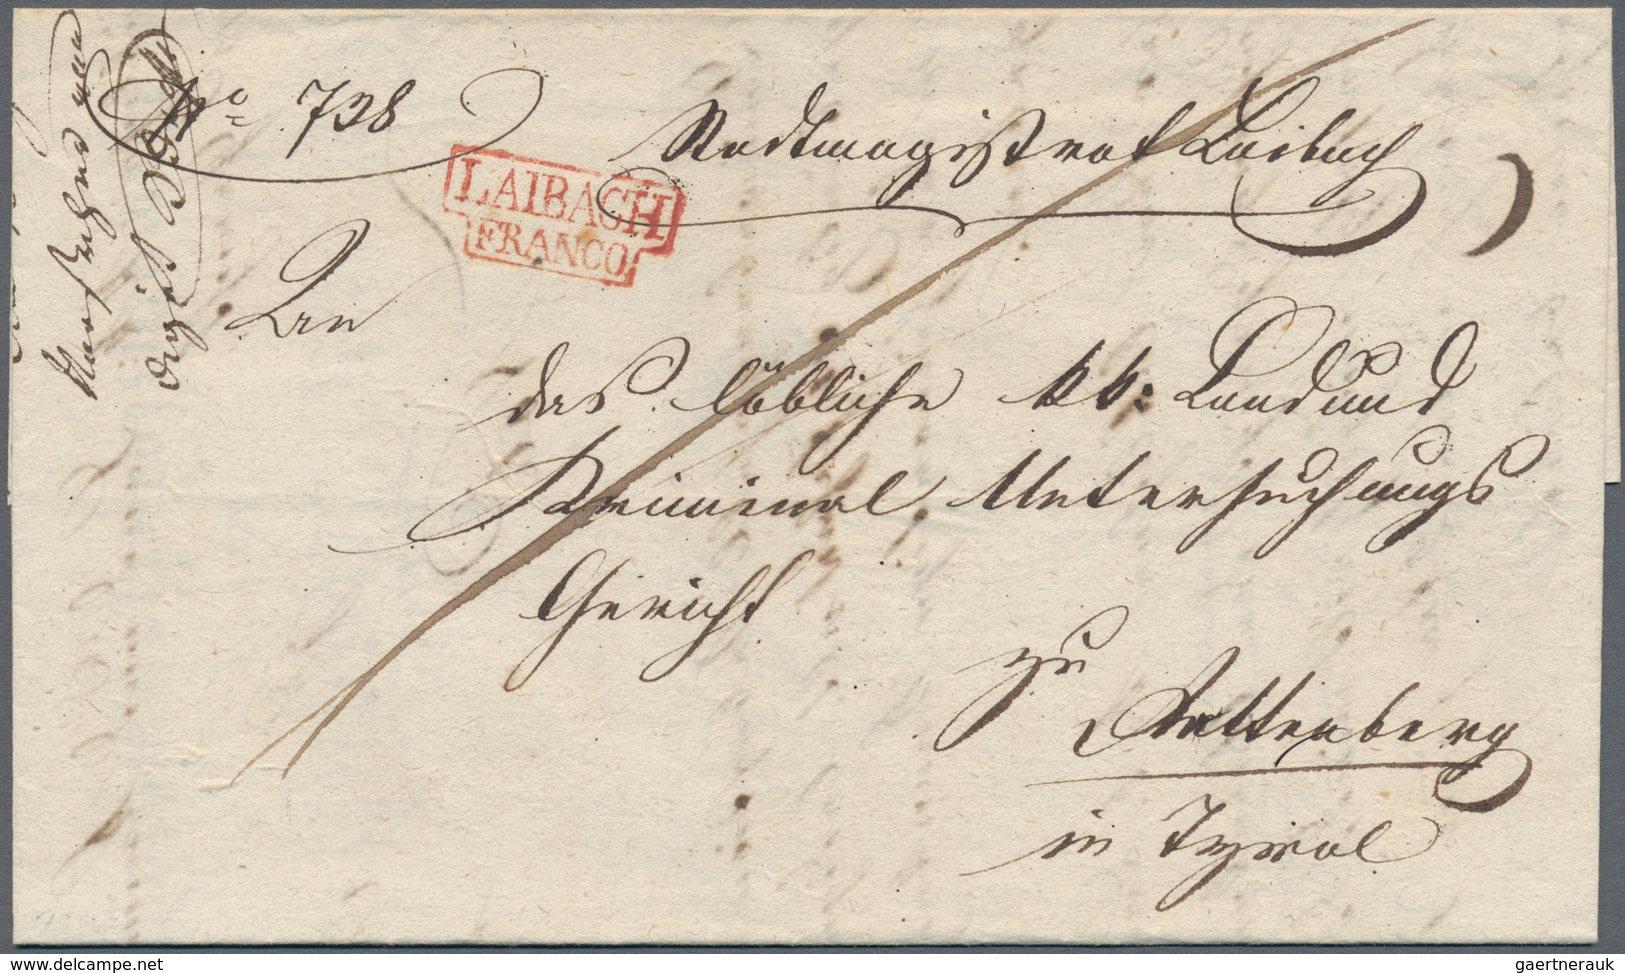 No 738
Stadtmagistrat Laibach
LAIBACH
FRANCO
An
das löbliche kk: Land und
Kriminal Untersuchungs
Gericht
zu
Rattenberg
in Tyrol
www.delcampe.net
gaertnerauk